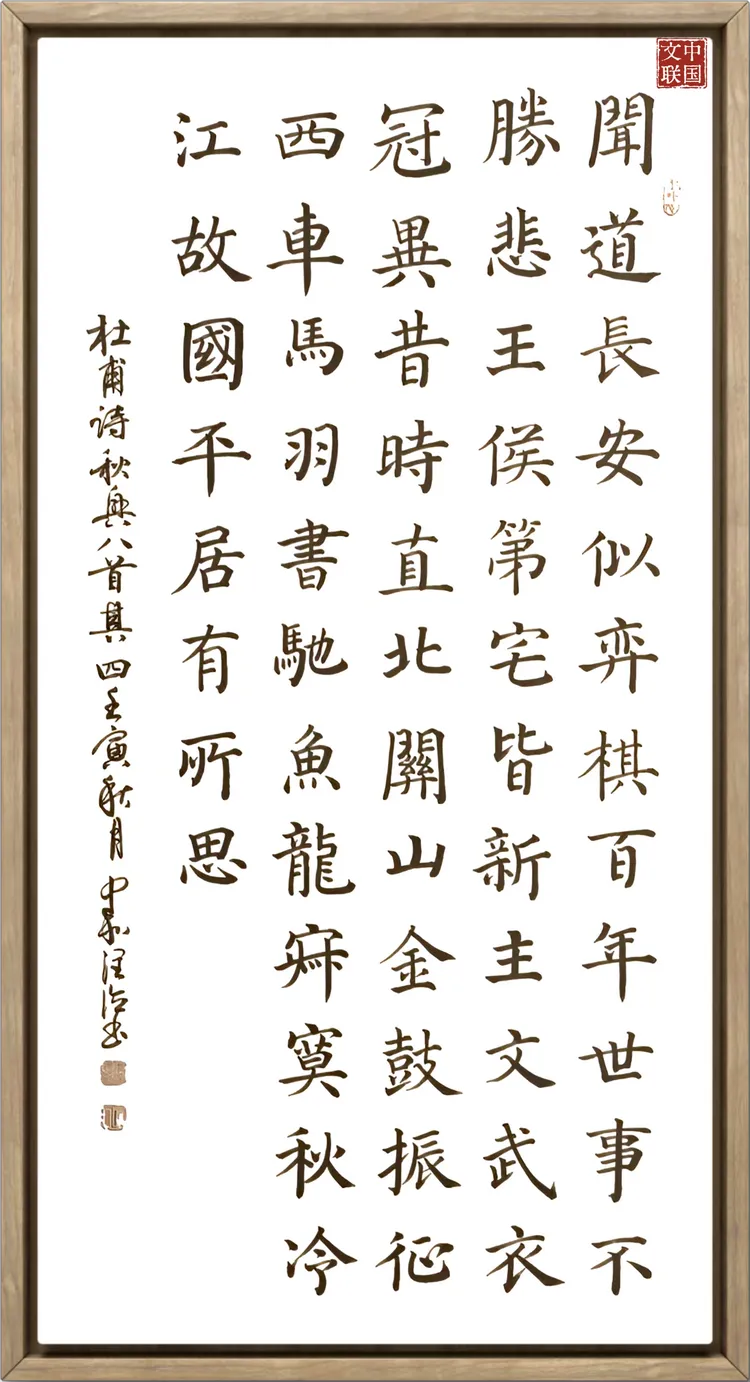 中国文联
聞道長安似弈棋百年世事不
勝悲王侯第宅皆新主文武衣
冠異昔時直北關山金鼓振征
西車馬羽書馳魚龍寂寞秋冷
江故國平居有所思
杜甫诗秋興八首其四壬寅秋月中